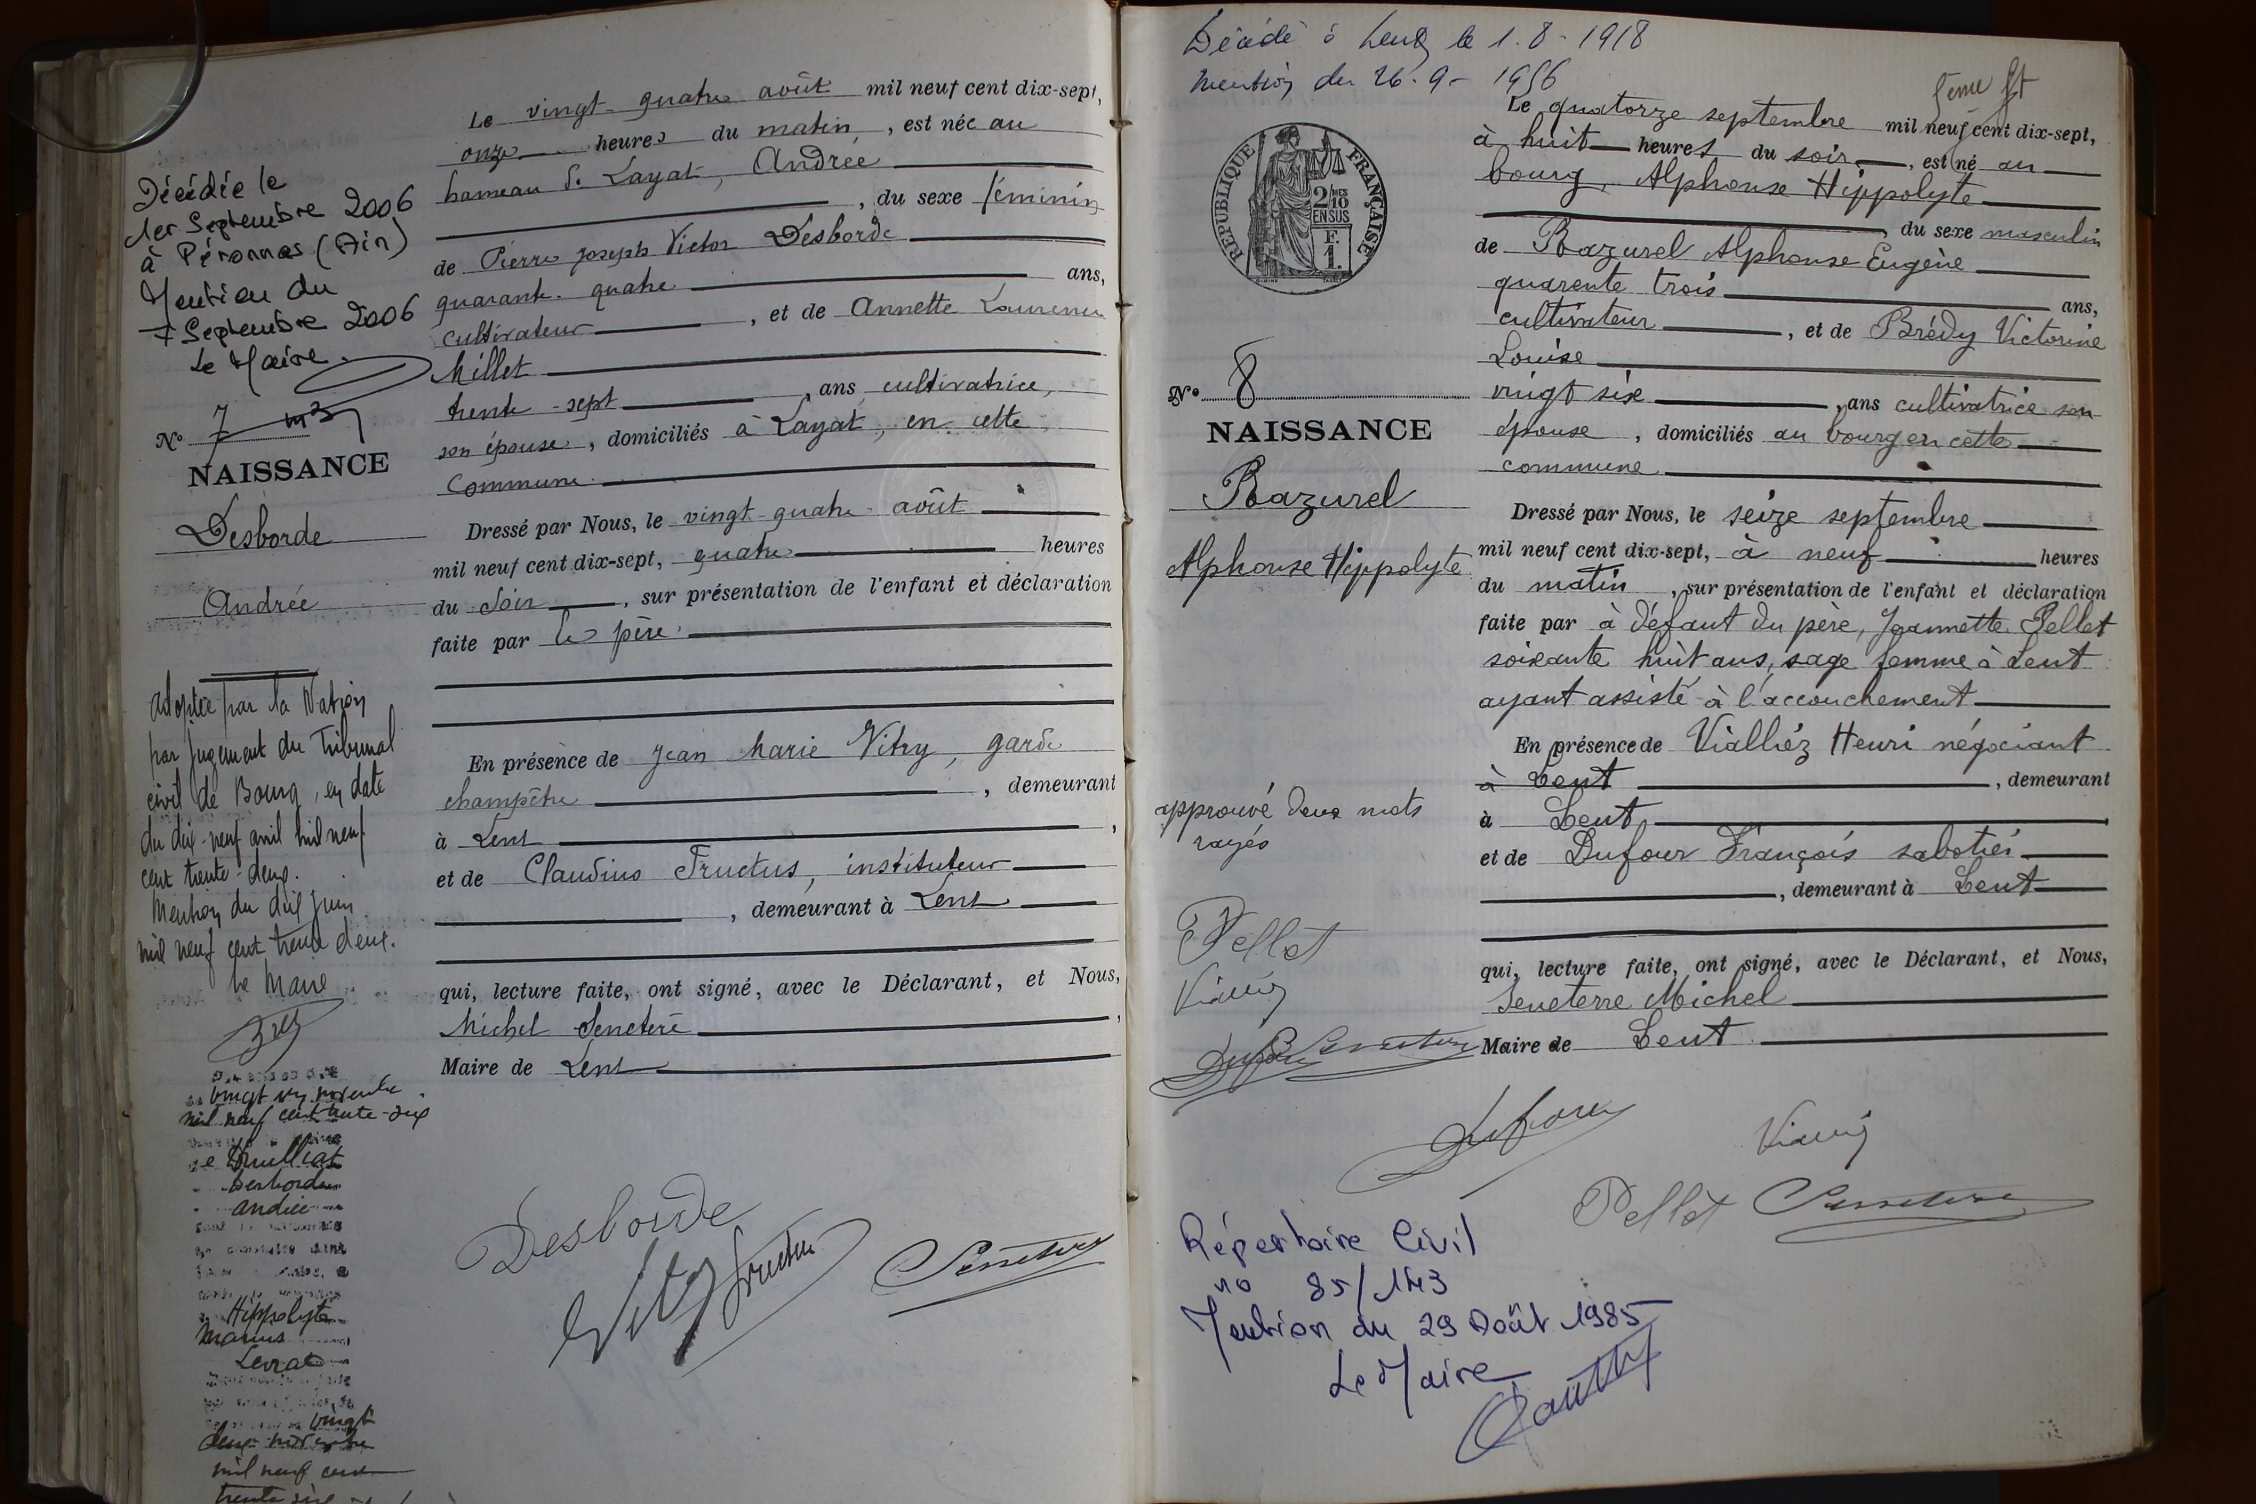 Décédée le
1er Septembre 2006
à Péronnas (Ain)
Mention du
7 Septembre 2006
Le Maire
N° 7
NAISSANCE
Desborde
Andrée
adoptée par la Nation
par jugement du Tribunal
civil de Bourg, en date
du dix-neuf avril mil neuf
cent trente-deux.
Mention du dix juin
mil neuf cent trente deux.
Le Maire
vingt un novembre
mil neuf cent trente-six
Desborde
andrée
Hippolyte
Marius
Levrat
vingt
deux novembre
mil neuf cent
trente six
Le vingt-quatre août mil neuf cent dix-sept,
onze heures du matin, est née au
hameau de Layat, Andrée
, du sexe féminin
de Pierre Joseph Victor Desborde
quarante-quatre ans,
cultivateur, et de Annette Laurence
Millet
trente-sept, ans cultivatrice,
son épouse, domiciliés à Layat, en cette
commune.
Dressé par Nous, le vingt-quatre août
mil neuf cent dix-sept, quatre heures
du soir, sur présentation de l'enfant et déclaration
faite par le père.
En présence de Jean Marie Vitry, garde
champêtre, demeurant
à Lent,
et de Claudius Fructus, instituteur
, demeurant à Lent
qui, lecture faite, ont signé, avec le Déclarant, et Nous,
Michel Seneterre,
Maire de Lent
Desborde
Vitry Fructus Seneterre
Décédé à Lent le 1.8.1918
mention du 26.9.1956
RÉPUBLIQUE FRANÇAISE
2/10 EN SUS
F. 1.
N° 8
NAISSANCE
Razurel
Alphonse Hippolyte
approuvé deux mots
rayés
Pellet
Dufour Seneterre
Le quatorze septembre mil neuf cent dix-sept,
à huit heures du soir, est né au
bourg, Alphonse Hippolyte
, du sexe masculin
de Razurel Alphonse Eugène
quarente trois ans,
cultivateur, et de Brédy Victorine
Louise
vingt six, ans cultivatrice son
épouse, domiciliés au bourg en cette
commune
Dressé par Nous, le seize septembre
mil neuf cent dix-sept, à neuf heures
du matin, sur présentation de l'enfant et déclaration
faite par à défaut du père, Jeannette Pellet
soixante huit ans, sage femme à Lent
ayant assisté à l'accouchement
En présence de Vialliéz Henri négociant
à Lent, demeurant
à Lent
et de Dufour François sabotier
, demeurant à Lent
qui, lecture faite, ont signé, avec le Déclarant, et Nous,
Seneterre Michel
Maire de Lent
Dufour
Pellet Seneterre
Répertoire Civil
no 85/143
Mention du 29 Août 1985
Le Maire